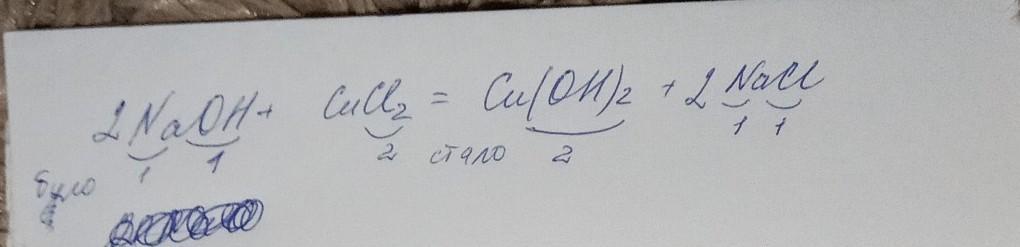 2NaOH + CuCl₂ = Cu(OH)₂ + 2NaCl
1 1 2 стало 2 1 1
было